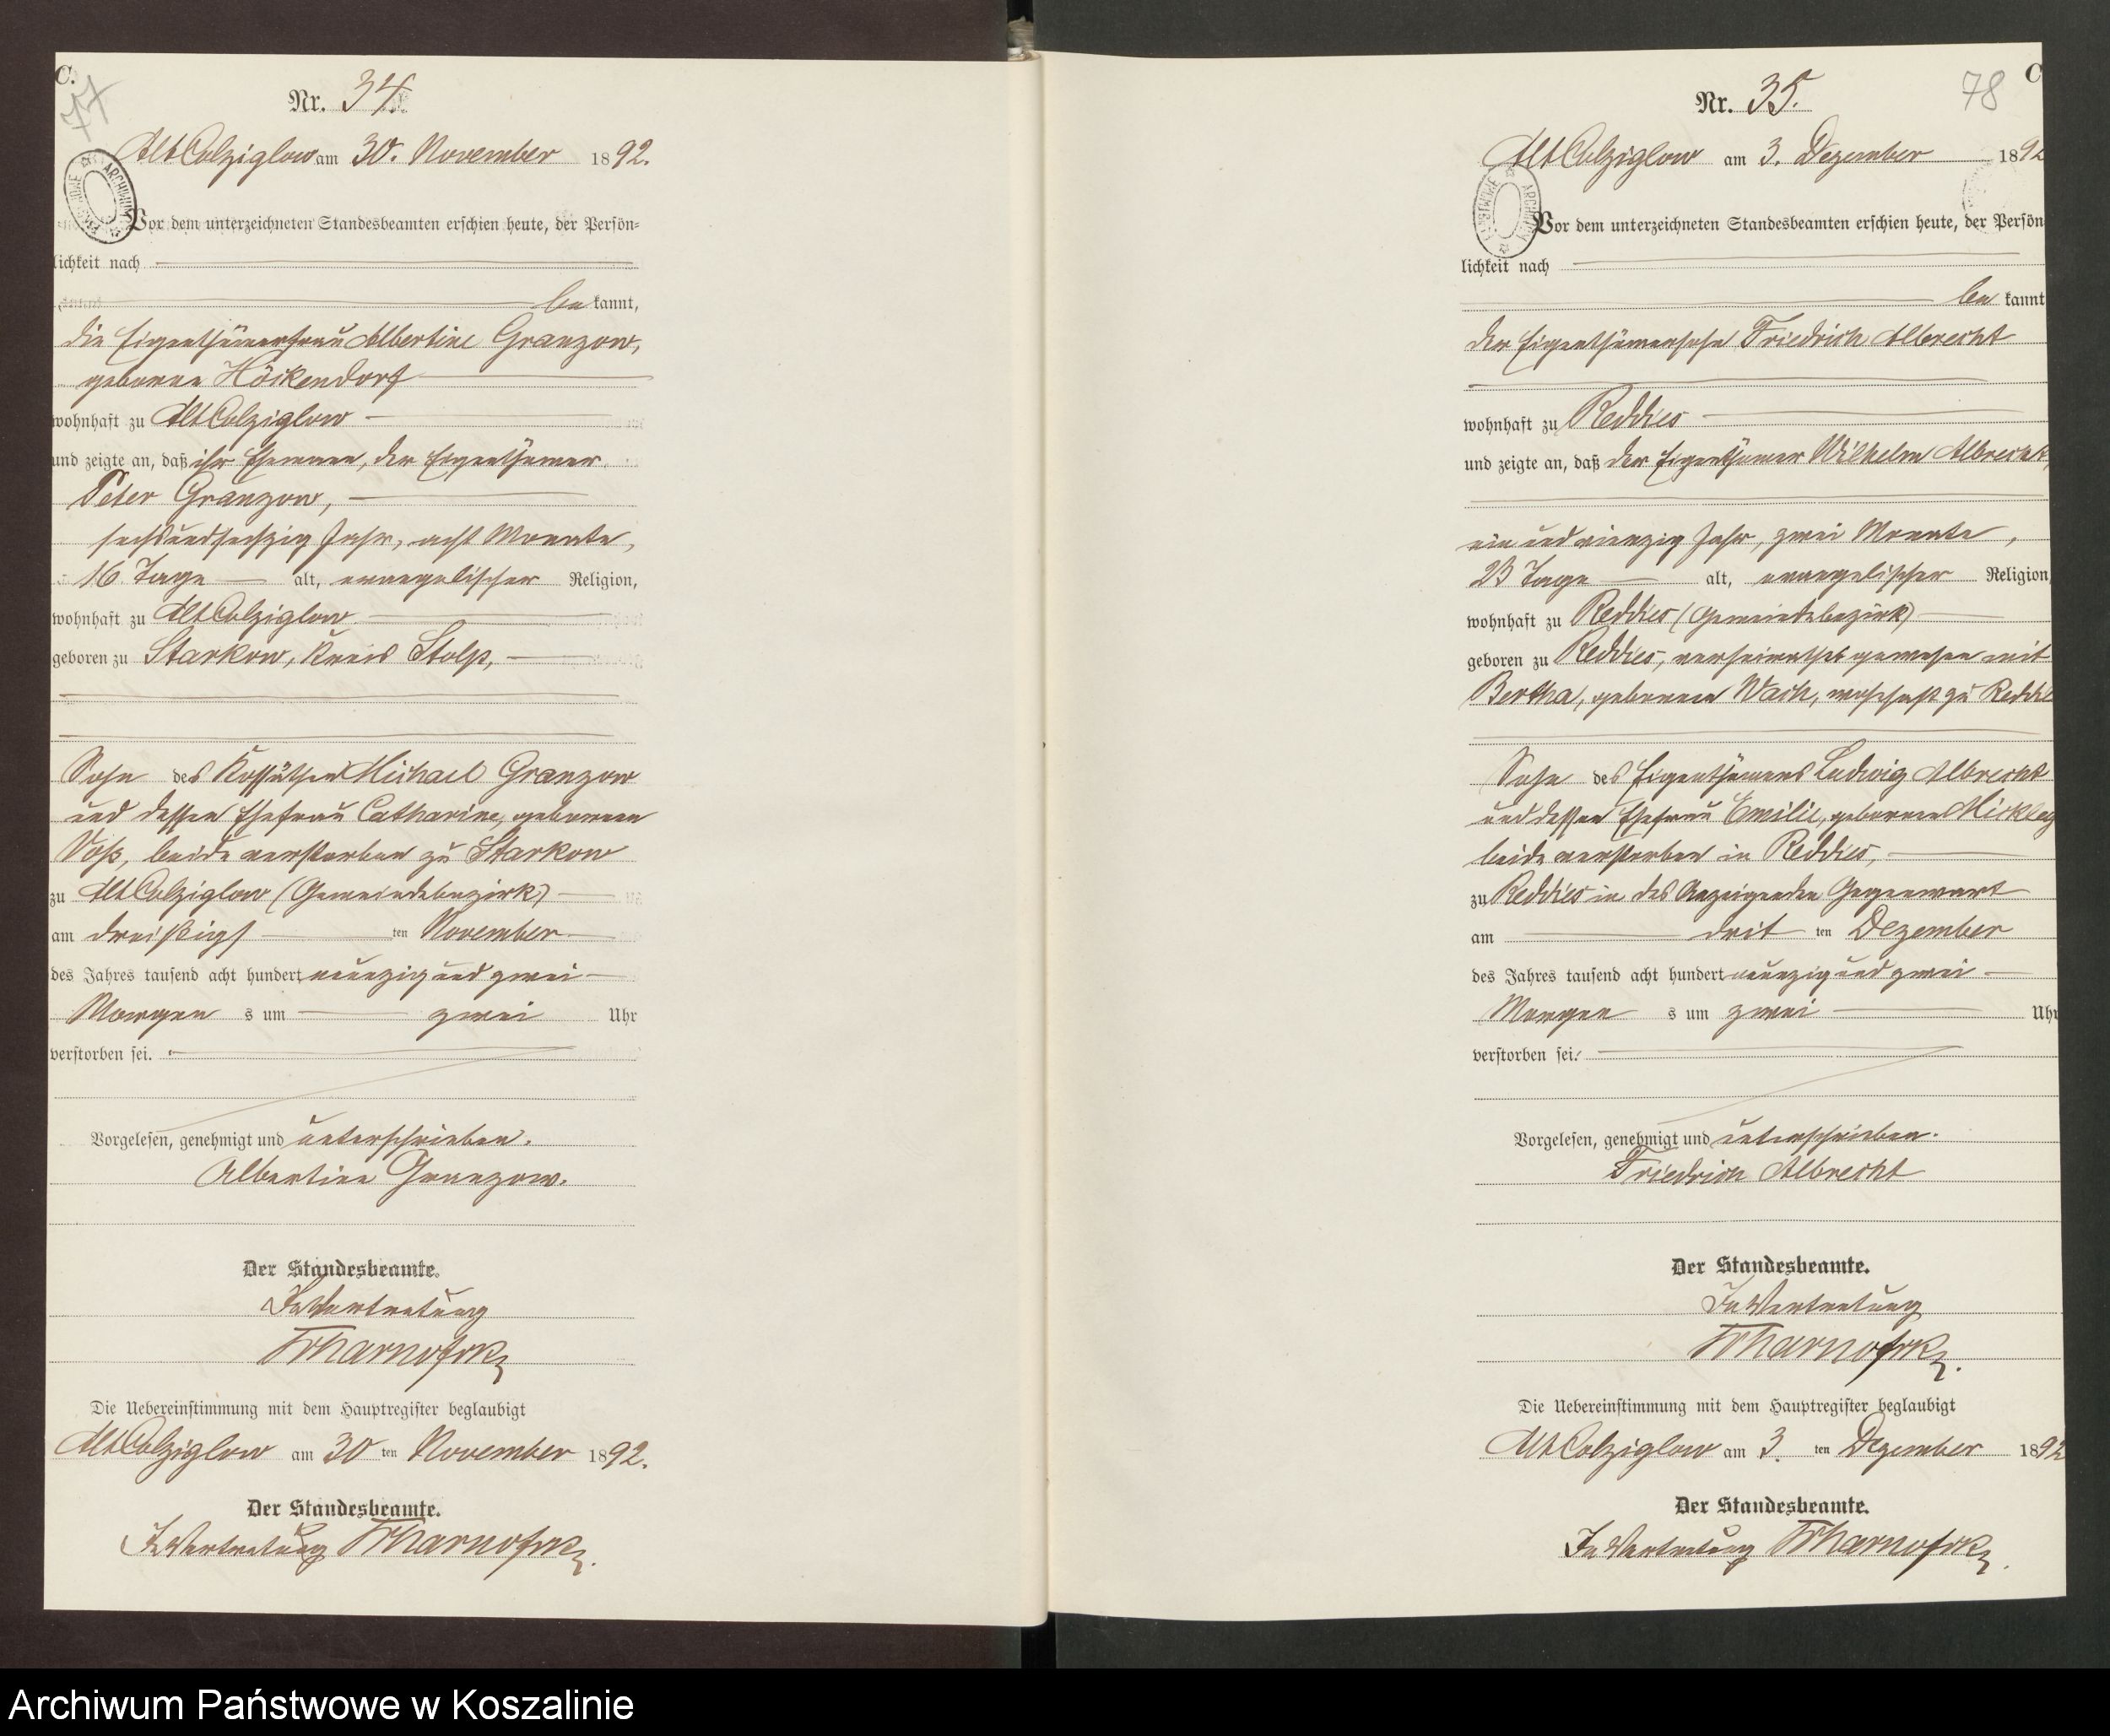 C.
77
Nr. 34.
Alt Colziglow am 30. November 1892.
Vor dem unterzeichneten Standesbeamten erschien heute, der Persön-
lichkeit nach
be kannt,
die Eigenthümerfrau Albertine Granzow,
geborene Höckendorf
wohnhaft zu Alt Colziglow
und zeigte an, daß ihr Ehemann, der Eigenthümer
Peter Granzow,
sechsundsechzig Jahr, acht Monate,
16 Tage alt, evangelischer Religion,
wohnhaft zu Alt Colziglow
geboren zu Starkow, Kreis Stolp,
Sohn des Kossäthen Michael Granzow
und dessen Ehefrau Catharine, geborenen
Voß, beide verstorben zu Starkow
zu Alt Colziglow (Gemeindebezirk)
am dreißigs ten November
des Jahres tausend acht hundert neunzig und zwei
Morgen s um zwei Uhr
verstorben sei.
Vorgelesen, genehmigt und unterschrieben.
Albertine Granzow.
Der Standesbeamte.
In Vertretung
Die Uebereinstimmung mit dem Hauptregister beglaubigt
Alt Colziglow am 30 ten November 1892.
Der Standesbeamte.
In Vertretung
C
78
Nr. 35.
Alt Colziglow am 3. Dezember 1892
Vor dem unterzeichneten Standesbeamten erschien heute, der Persön
lichkeit nach
be kannt
der Eigenthümersohn Friedrich Albrecht
wohnhaft zu Reddies
und zeigte an, daß der Eigenthümer Wilhelm Albrecht,
ein und vierzig Jahr, zwei Monate,
23 Tage alt, evangelischer Religion,
wohnhaft zu Reddies (Gemeindebezirk)
geboren zu Reddies, verheirathet gewesen mit
Bertha, geborenen Wach, wohnhaft zu Reddie
Sohn des Eigenthümers Ludwig Albrecht
und dessen Ehefrau Emilie, geborenen
beide verstorben in Reddies,
zu Reddies in des Anzeigenden Gegenwart
am drit ten Dezember
des Jahres tausend acht hundert neunzig und zwei
Morgen s um zwei Uhr
verstorben sei.
Vorgelesen, genehmigt und unterschrieben.
Friedrich Albrecht
Der Standesbeamte.
In Vertretung
Die Uebereinstimmung mit dem Hauptregister beglaubigt
Alt Colziglow am 3. ten Dezember 1892
Der Standesbeamte.
In Vertretung
Archiwum Państwowe w Koszalinie